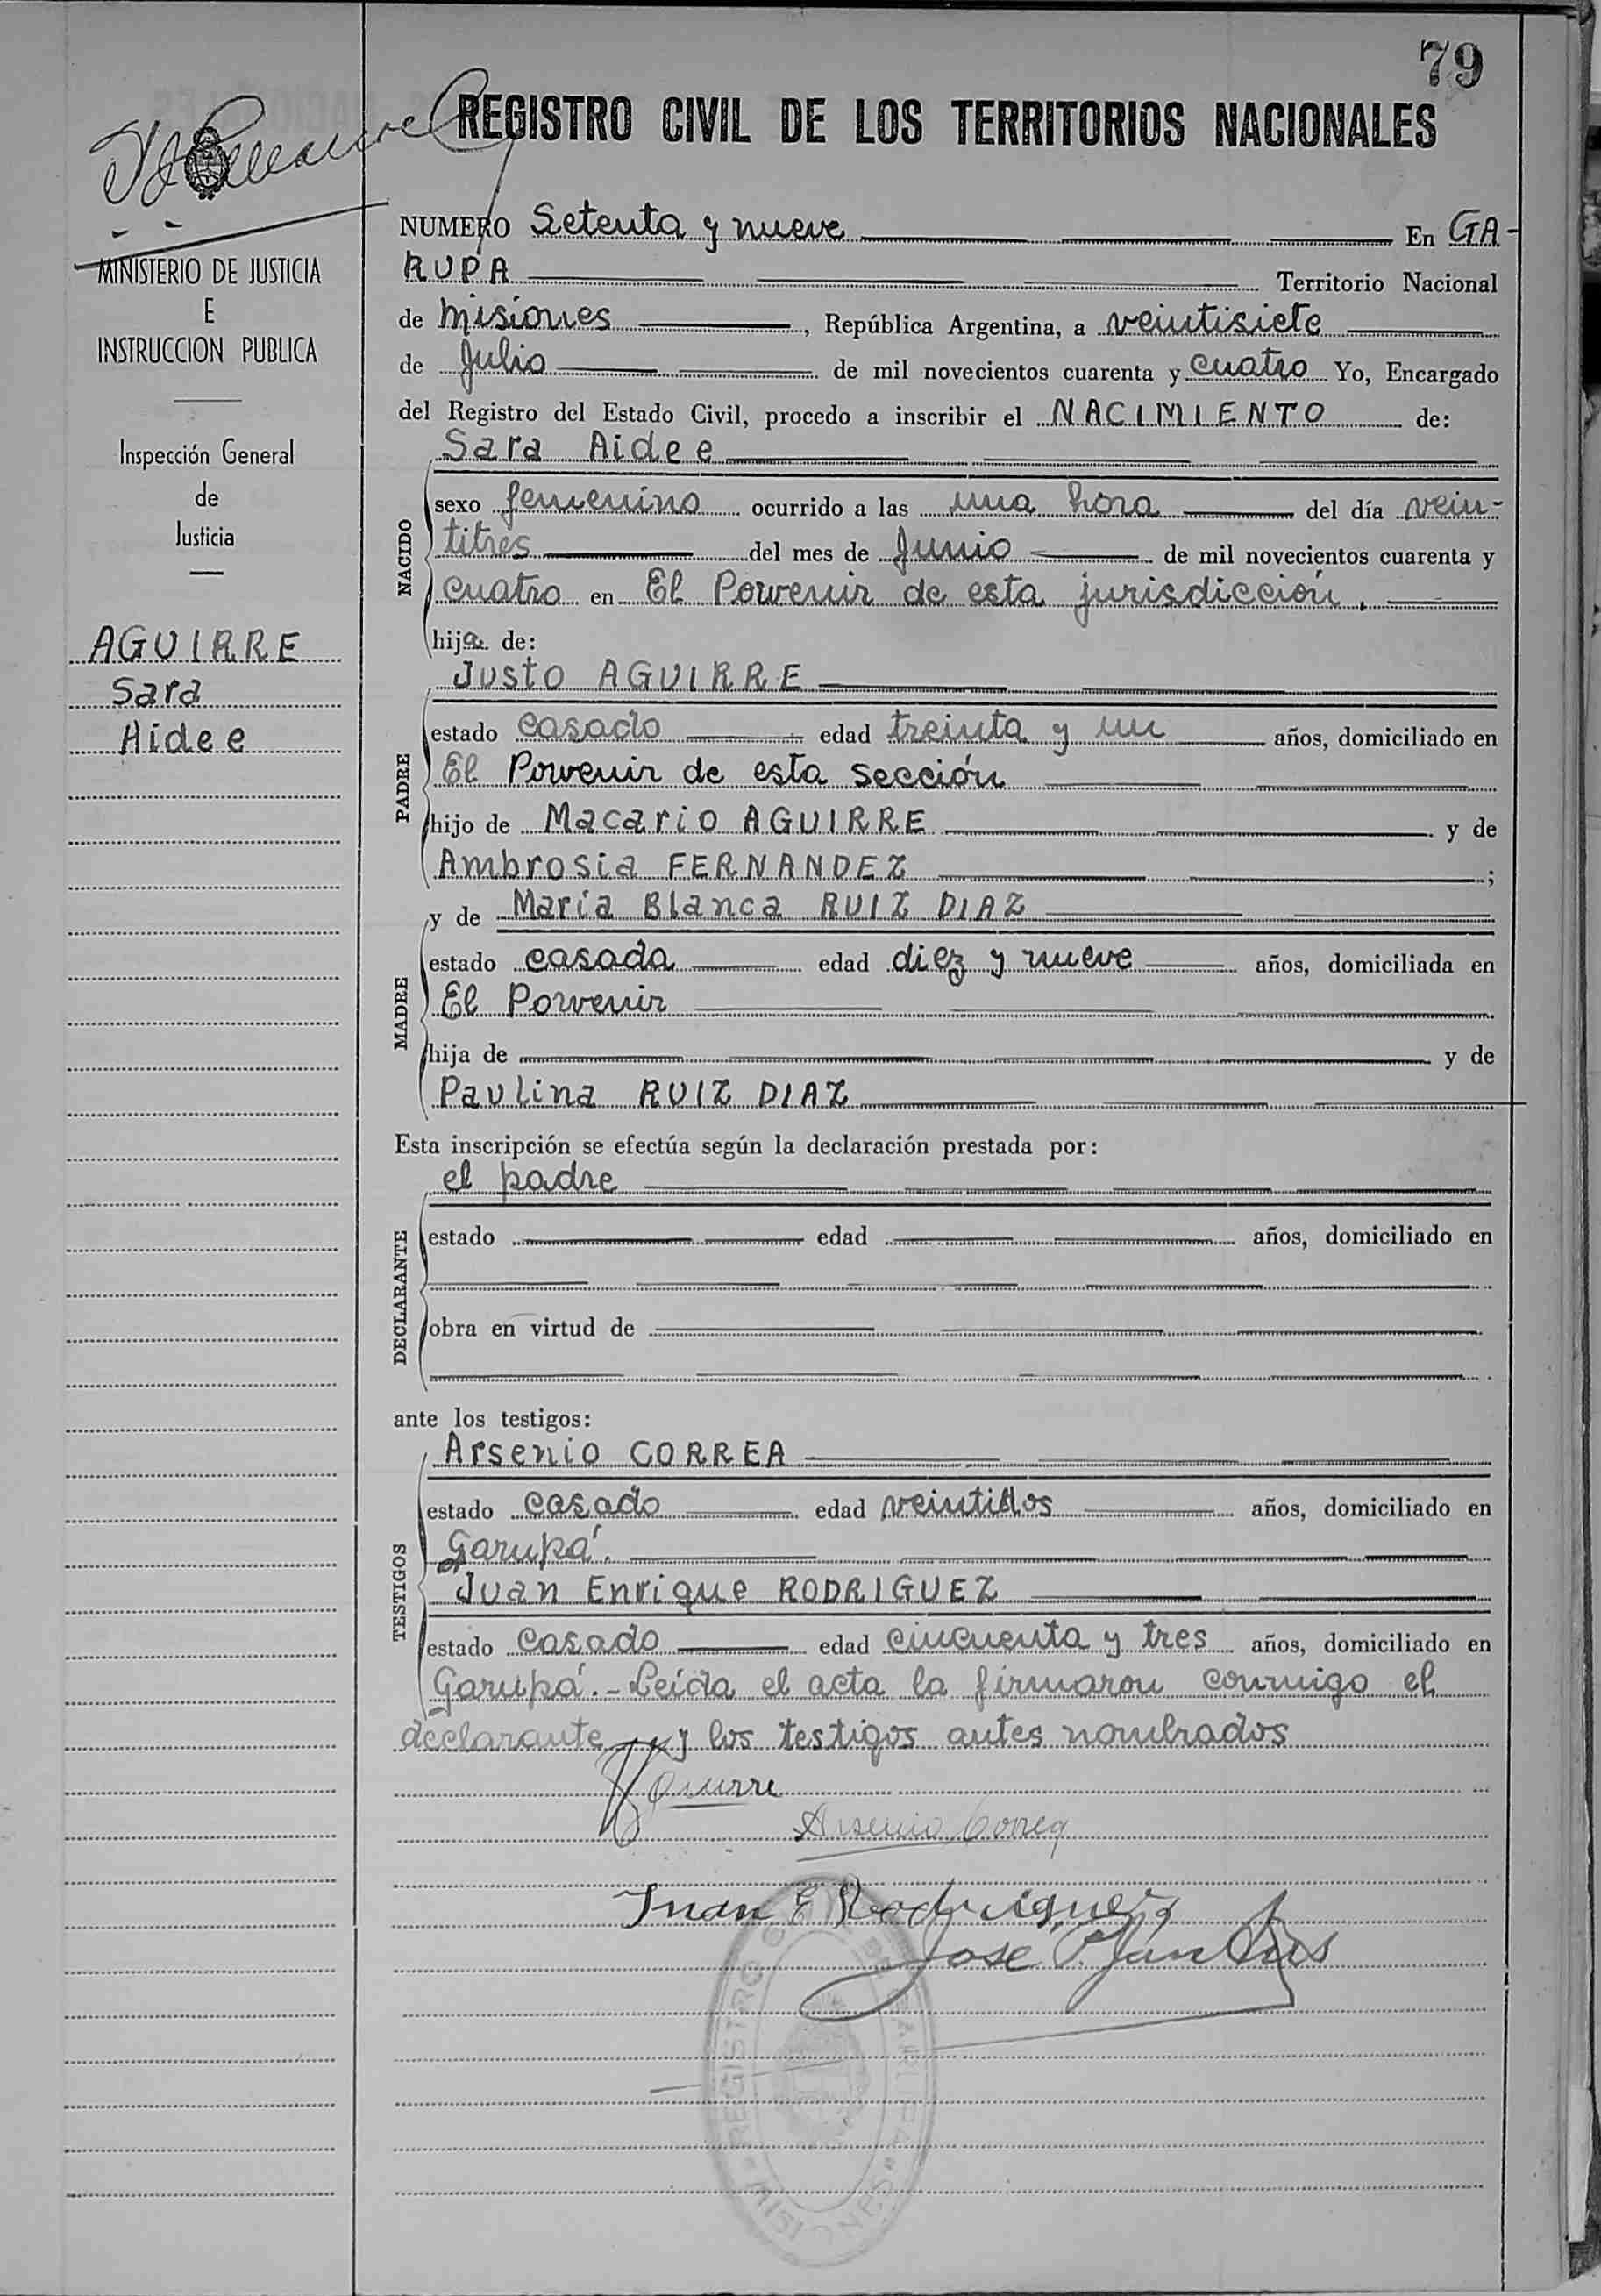 79
REGISTRO CIVIL DE LOS TERRITORIOS NACIONALES
MINISTERIO DE JUSTICIA
E
INSTRUCCION PUBLICA
Inspección General
de
Justicia
AGUIRRE
Sara
Aidee
NUMERO Setenta y nueve En GA-
RUPA Territorio Nacional
de Misiones, República Argentina, a veintisiete
de Julio de mil novecientos cuarenta y cuatro Yo, Encargado
del Registro del Estado Civil, procedo a inscribir el NACIMIENTO de:
Sara Aidee
NACIDO
sexo femenino ocurrido a las una hora del día vein-
titres del mes de Junio de mil novecientos cuarenta y
cuatro en El Porvenir de esta jurisdicción.
hija de:
Justo AGUIRRE
PADRE
estado casado edad treinta y un años, domiciliado en
El Porvenir de esta sección
hijo de Macario AGUIRRE y de
Ambrosia FERNANDEZ ;
y de María Blanca RUIZ DIAZ
MADRE
estado casada edad diez y nueve años, domiciliada en
El Porvenir
hija de y de
Paulina RUIZ DIAZ
Esta inscripción se efectúa según la declaración prestada por:
el padre
DECLARANTE
estado edad años, domiciliado en
obra en virtud de
ante los testigos:
Arsenio CORREA
TESTIGOS
estado casado edad veintidos años, domiciliado en
Garupá.
Juan Enrique RODRIGUEZ
estado casado edad cincuenta y tres años, domiciliado en
Garupá.- Leída el acta la firmaron conmigo el
declarante y los testigos antes nombrados
Aguirre
Arsenio Correa
Juan E Rodriguez
José
REGISTRO